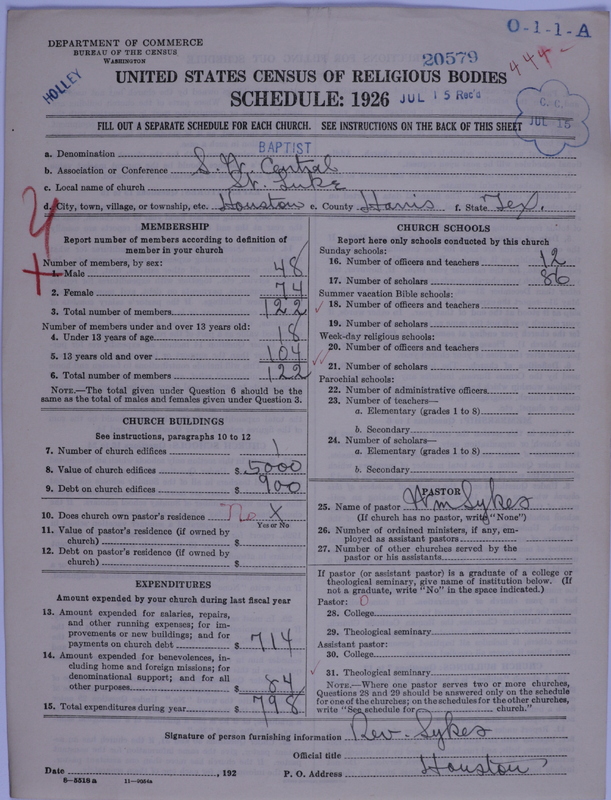 O-1-1-A
DEPARTMENT OF COMMERCE
BUREAU OF THE CENSUS
WASHINGTON
20579
444-
HOLLEY
UNITED STATES CENSUS OF RELIGIOUS BODIES
SCHEDULE: 1926
JUL 15 Rec'd
C. C.
JUL 15
FILL OUT A SEPARATE SCHEDULE FOR EACH CHURCH. SEE INSTRUCTIONS ON THE BACK OF THIS SHEET
a. Denomination BAPTIST
b. Association or Conference S. W. Central
c. Local name of church St. Luke
d. City, town, village, or township, etc. Houston e. County Harris f. State Tex.
MEMBERSHIP
Report number of members according to definition of
member in your church
Number of members, by sex:
1. Male 48
2. Female 74
3. Total number of members 122
Number of members under and over 13 years old:
4. Under 13 years of age 18
5. 13 years old and over 104
6. Total number of members 122
NOTE.—The total given under Question 6 should be
the same as the total of males and females given under Question 3.
CHURCH BUILDINGS
See instructions, paragraphs 10 to 12
7. Number of church edifices 1
8. Value of church edifices $ 5000
9. Debt on church edifices $ 900
10. Does church own pastor's residence No X
Yes or No
11. Value of pastor's residence (if owned by
church) $
12. Debt on pastor's residence (if owned by
church) $
EXPENDITURES
Amount expended by your church during last fiscal year
13. Amount expended for salaries, repairs,
and other running expenses; for im-
provements or new buildings; and for
payments on church debt $ 714
14. Amount expended for benevolences, in-
cluding home and foreign missions; for
denominational support; and for all
other purposes $ 84
15. Total expenditures during year $ 798
CHURCH SCHOOLS
Report here only schools conducted by this church
Sunday schools:
16. Number of officers and teachers 12
17. Number of scholars 86
Summer vacation Bible schools:
18. Number of officers and teachers
19. Number of scholars
Week-day religious schools:
20. Number of officers and teachers
21. Number of scholars
Parochial schools:
22. Number of administrative officers
23. Number of teachers—
a. Elementary (grades 1 to 8)
b. Secondary
24. Number of scholars—
a. Elementary (grades 1 to 8)
b. Secondary
PASTOR
25. Name of pastor Wm Sykes
(If church has no pastor, write "None")
26. Number of ordained ministers, if any, em-
ployed as assistant pastors
27. Number of other churches served by the
pastor or his assistants
If pastor (or assistant pastor) is a graduate of a college or
theological seminary, give name of institution below. (If
not a graduate, write "No" in the space indicated.)
Pastor: 0
28. College
29. Theological seminary
Assistant pastor:
30. College
31. Theological seminary
NOTE.—Where one pastor serves two or more churches,
Questions 28 and 29 should be answered only on the schedule
for one of the churches; on the schedules for the other churches,
write "See schedule for church."
Signature of person furnishing information Rev. Sykes
Official title
Date , 192 P. O. Address Houston
8-5518a 11-9054a